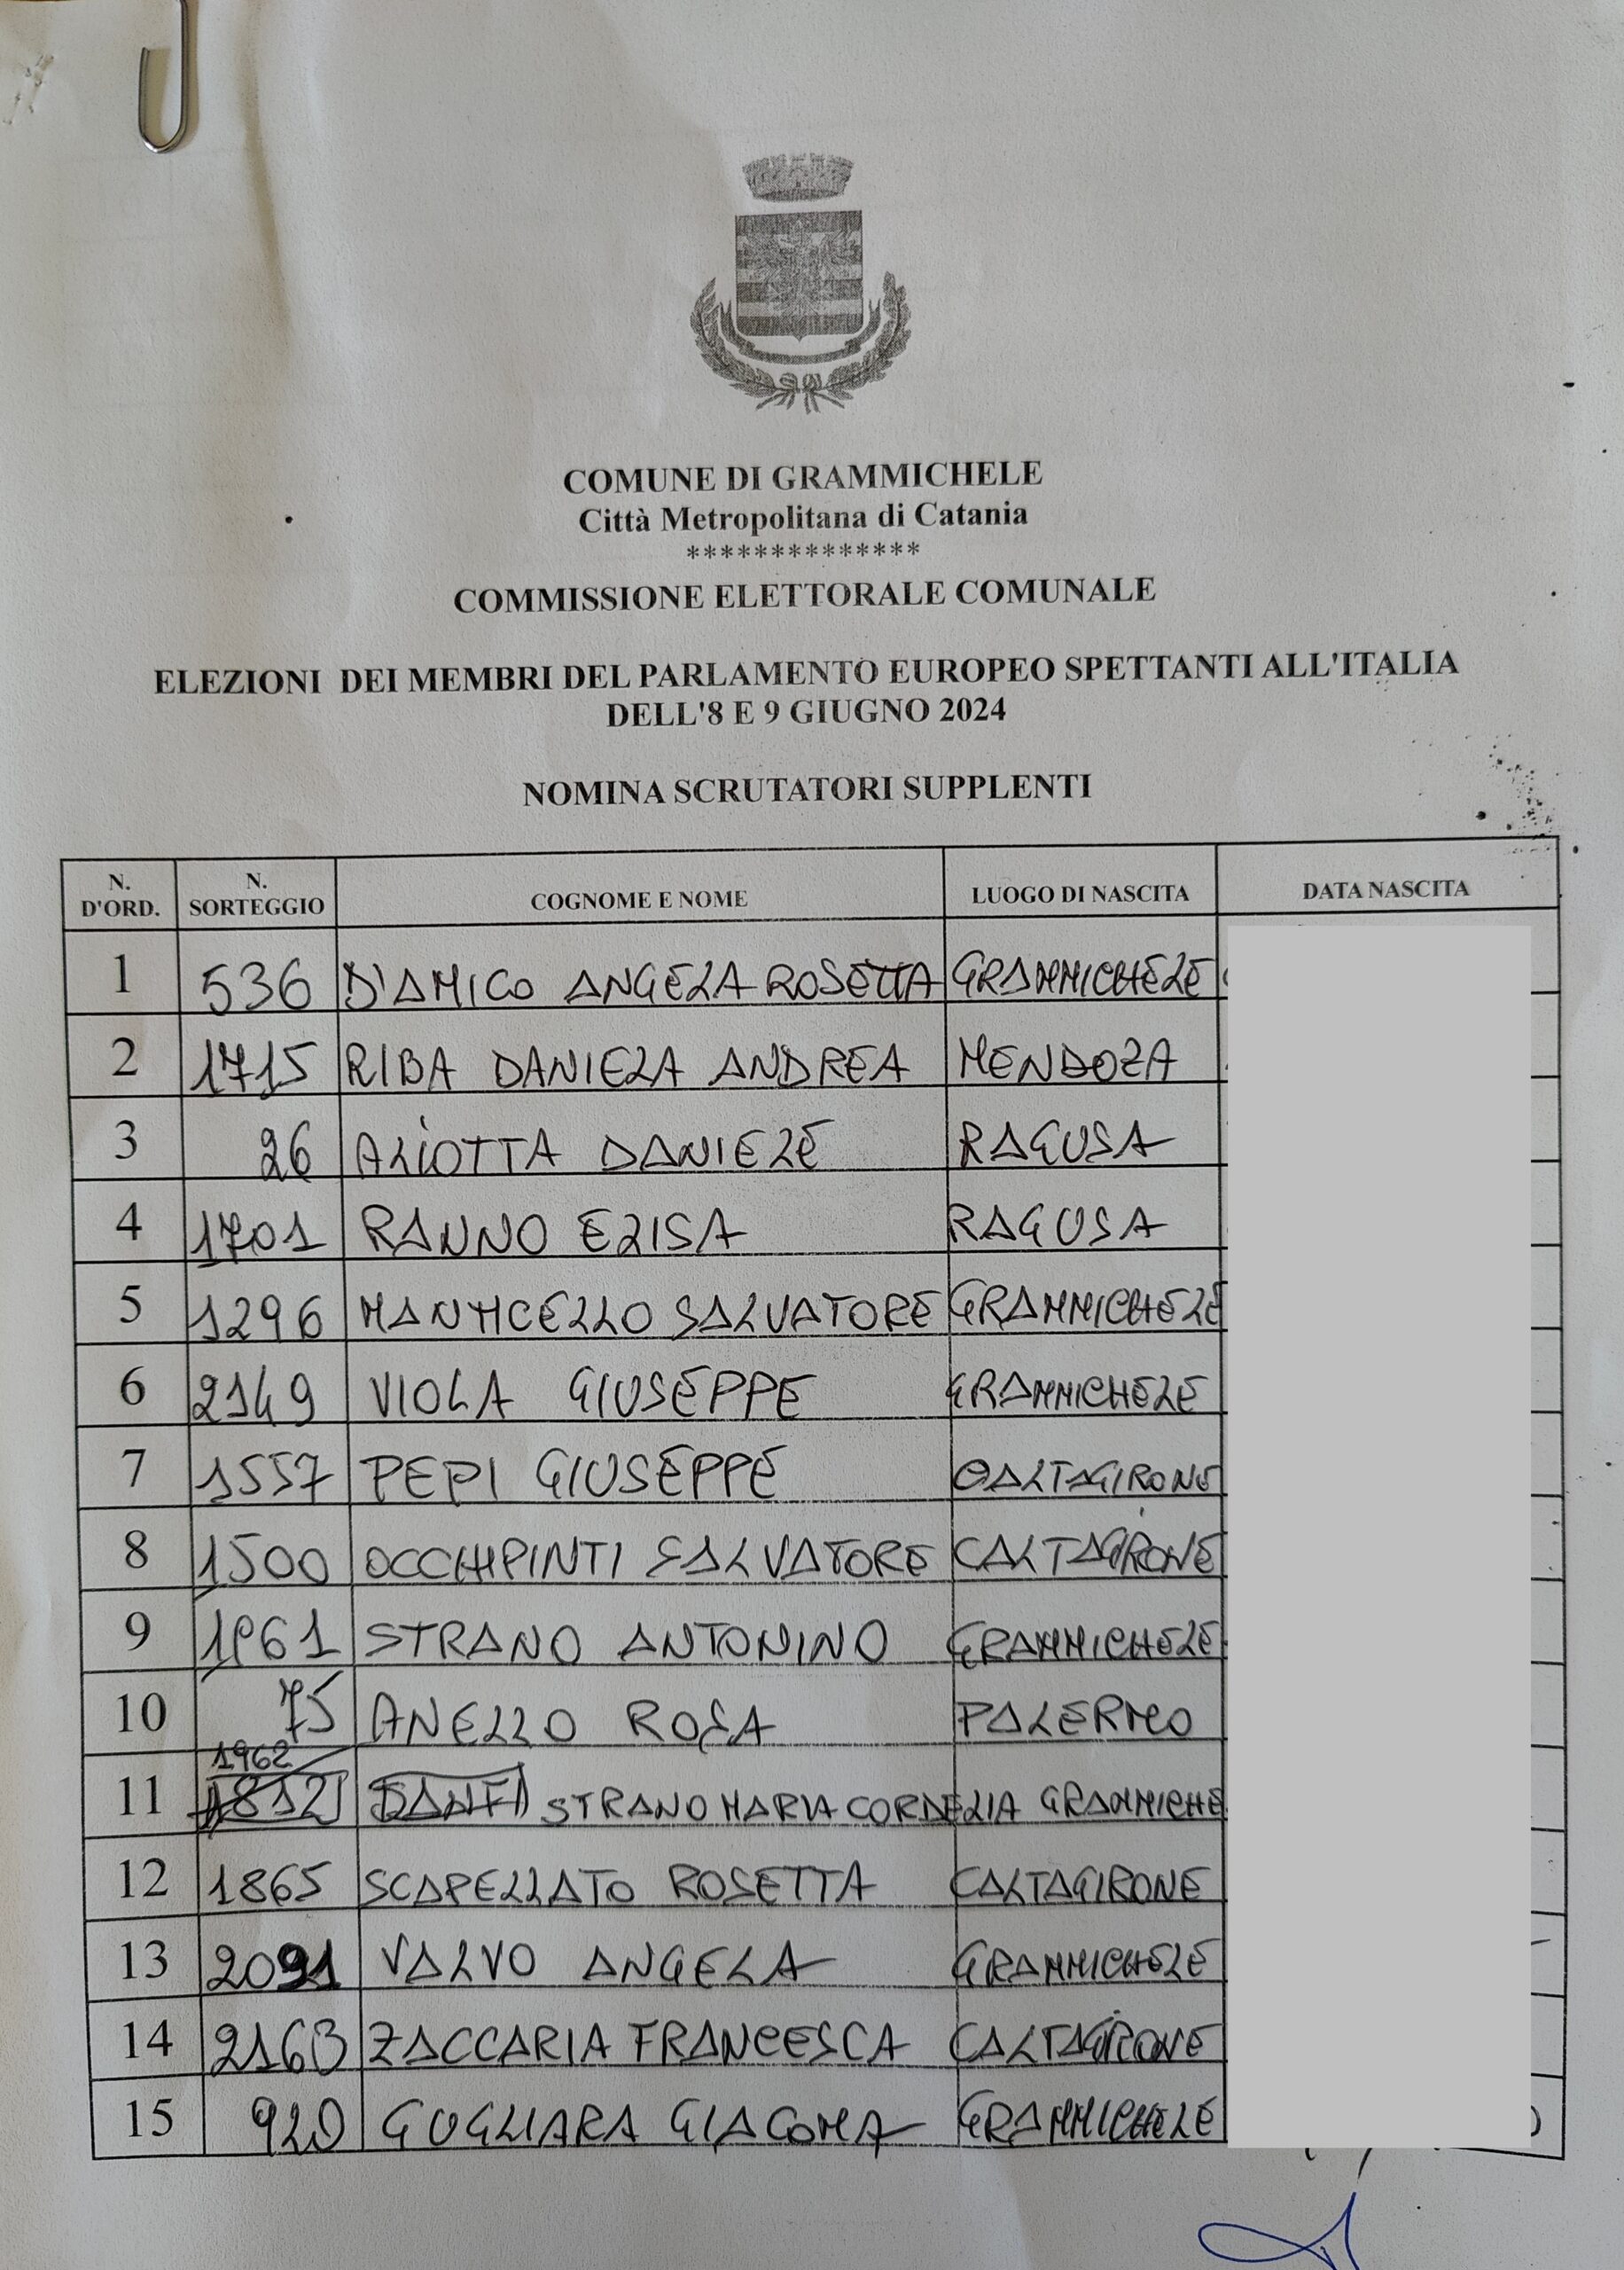 COMUNE DI GRAMMICHELE
Città Metropolitana di Catania
**************
COMMISSIONE ELETTORALE COMUNALE
ELEZIONI DEI MEMBRI DEL PARLAMENTO EUROPEO SPETTANTI ALL'ITALIA
DELL'8 E 9 GIUGNO 2024
NOMINA SCRUTATORI SUPPLENTI
N. D'ORD. N. SORTEGGIO COGNOME E NOME LUOGO DI NASCITA DATA NASCITA
1 536 D'AMICO ANGELA ROSETTA GRAMMICHELE
2 1715 RIBA DANIELA ANDREA MENDOZA
3 26 ALIOTTA DANIELE RAGUSA
4 1701 RANNO ELISA RAGUSA
5 1296 SALVATORE GRAMMICHELE
6 2149 VIOLA GIUSEPPE GRAMMICHELE
7 1557 PEPI GIUSEPPE CALTAGIRONE
8 1500 OCCHIPINTI SALVATORE CALTAGIRONE
9 1961 STRANO ANTONINO GRAMMICHELE
10 75 ANELLO ROSA PALERMO
11 1962 STRANO MARIA CORDELIA GRAMMICHE
12 1865 SCAPELLATO ROSETTA CALTAGIRONE
13 2091 VALVO ANGELA GRAMMICHELE
14 2163 ZACCARIA FRANCESCA CALTAGIRONE
15 920 GUGLIARA GIACOMA GRAMMICHELE